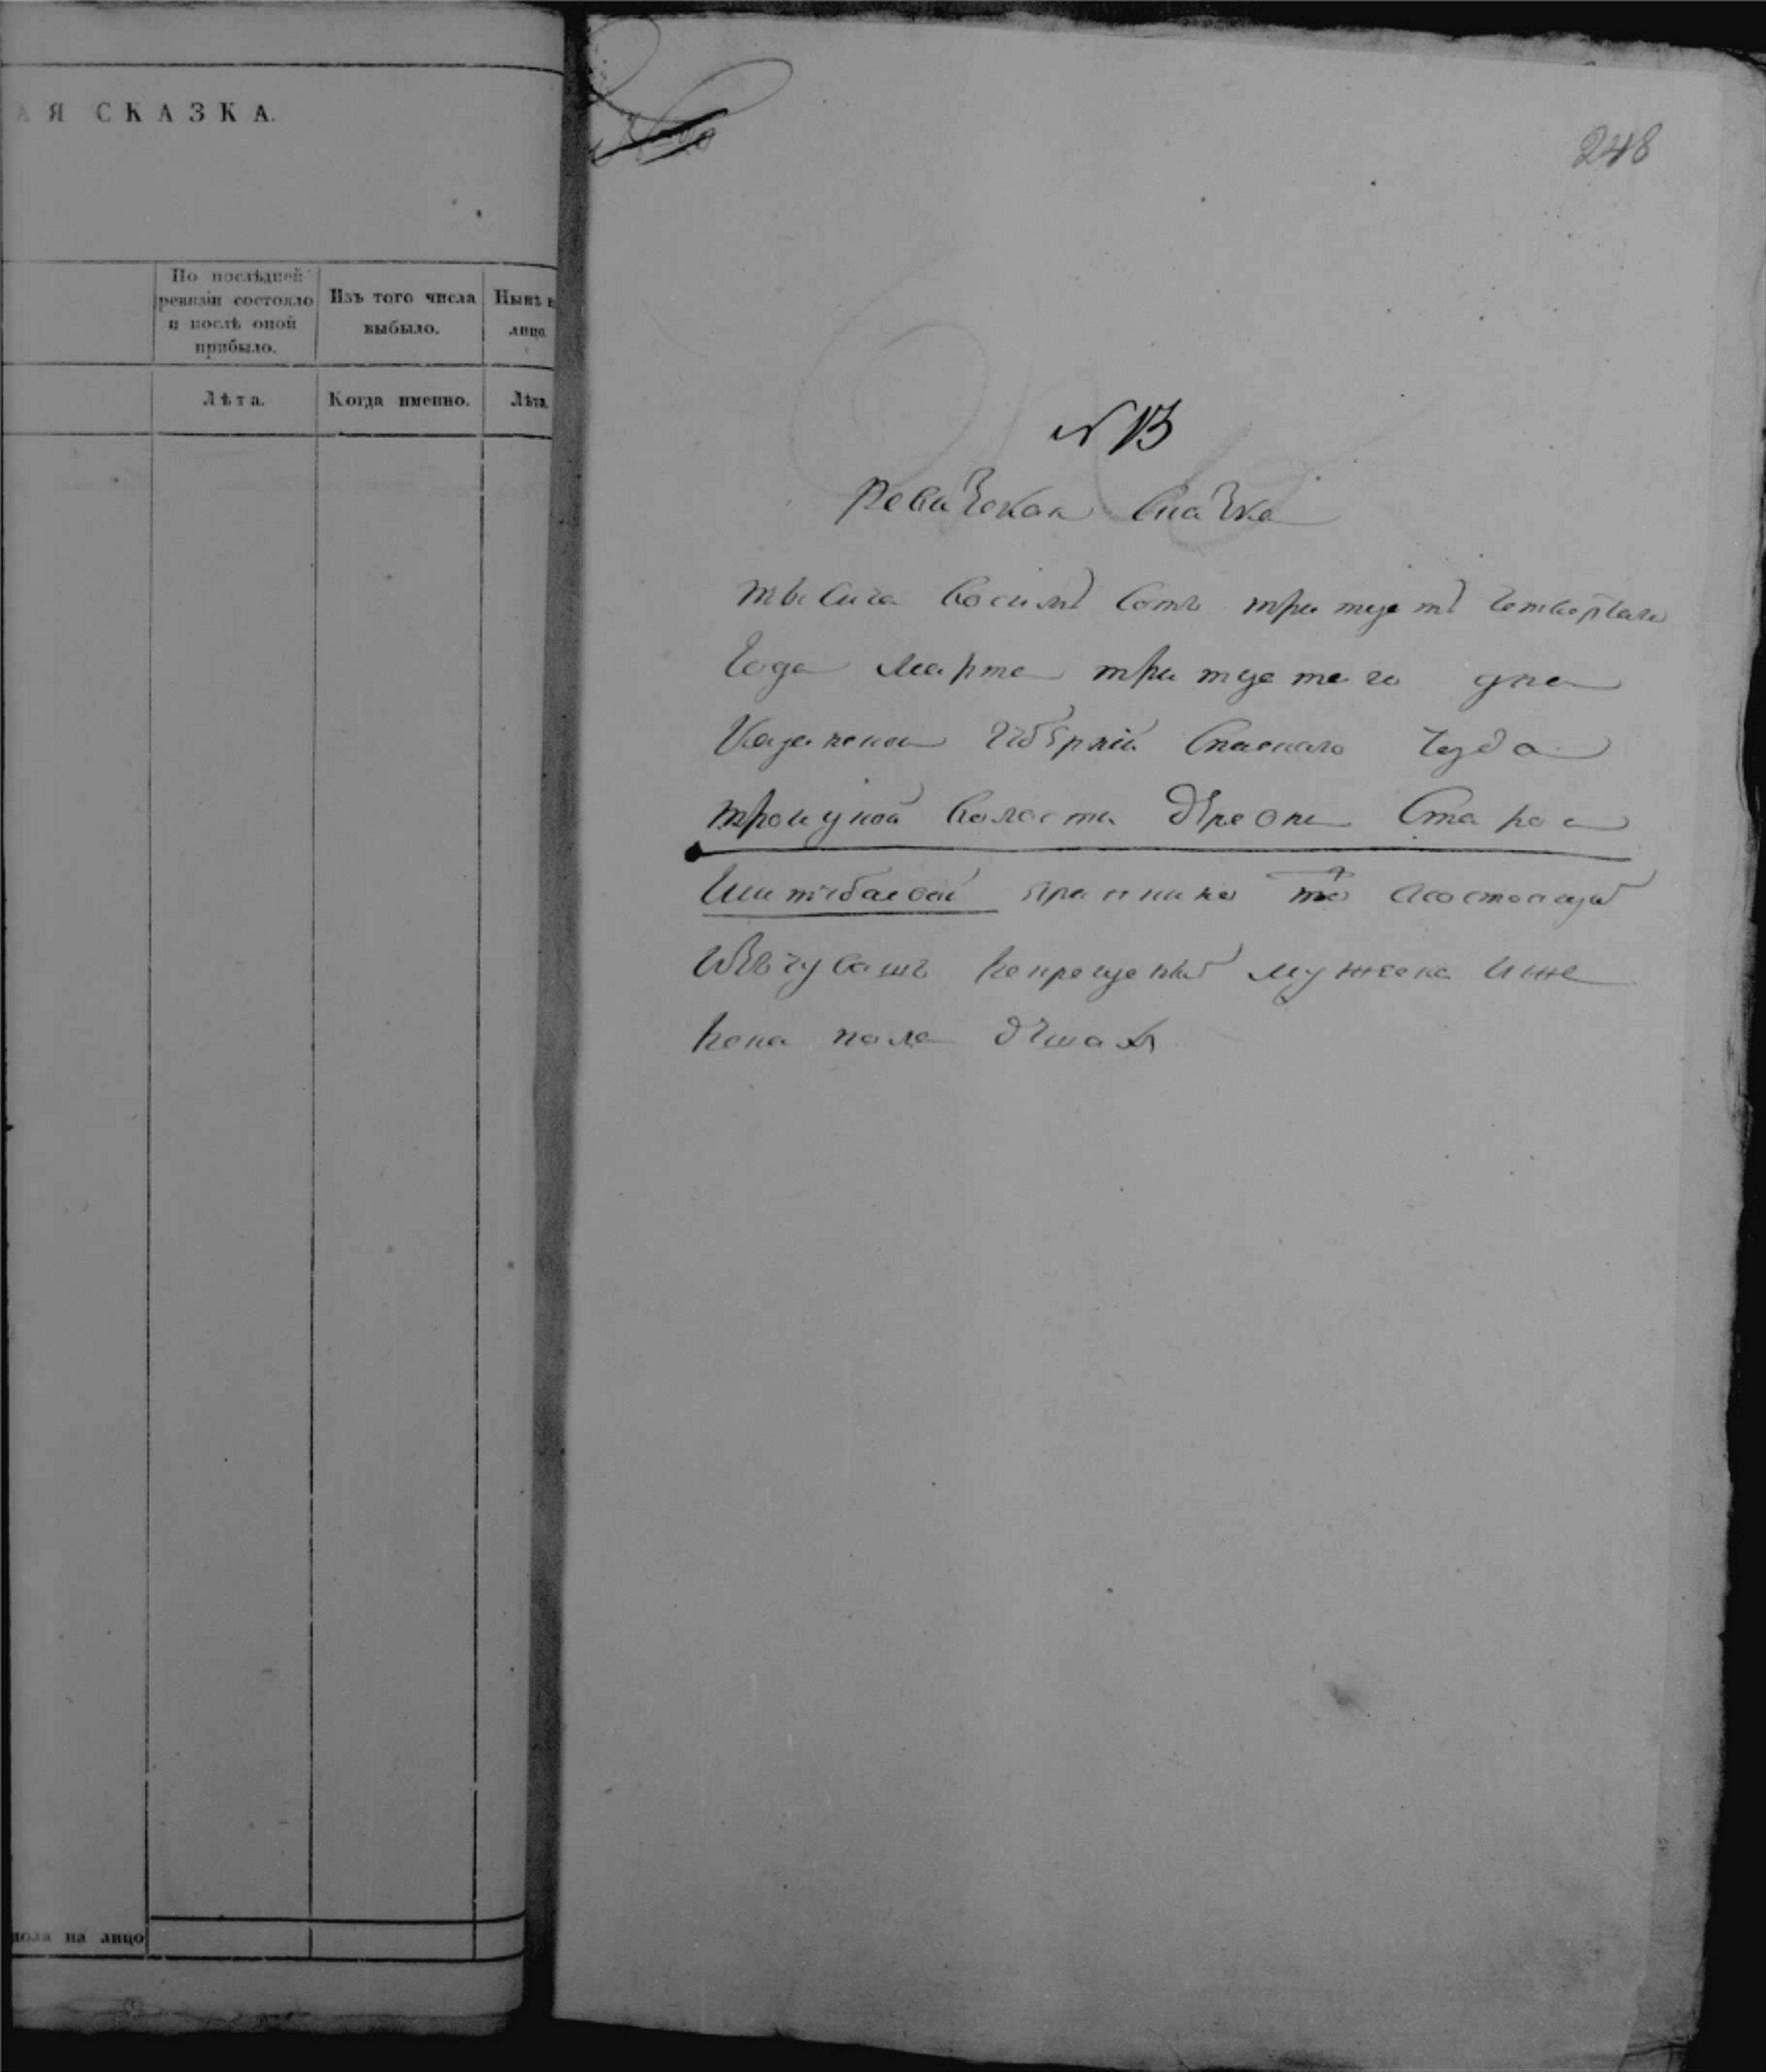 АЯ СКАЗКА.
По послѣдней
ревизіи состояло
и послѣ оной
прибыло.
Изъ того числа
выбыло.
Нынѣ н
лицо.
Лѣта.
Когда именно.
Лѣта.
пола на лицо
248
№ 13
Ревизская Сказка
тысяча восимъ сотъ тритцетъ четвертаго
Года Марта тритцетаго дня
Казанской Губерніи Спаскаго уезда
троицкой волости деревни Старой
состоящих
чувашъ некрещеных мужеска иже
нска пола душах